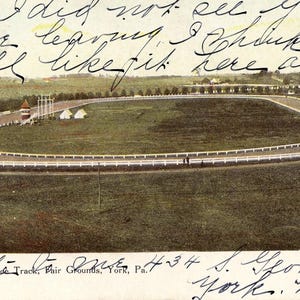 I did not see
leaving, I think
like it here
Track, Fair Grounds, York, Pa.
to me 434 S. Geo
York.